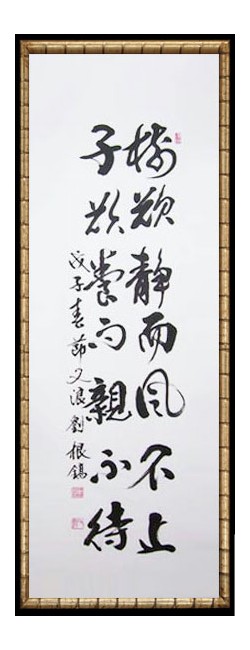 樹欲靜而風不止
子欲養而親不待
戊子春節又浪劉根錫